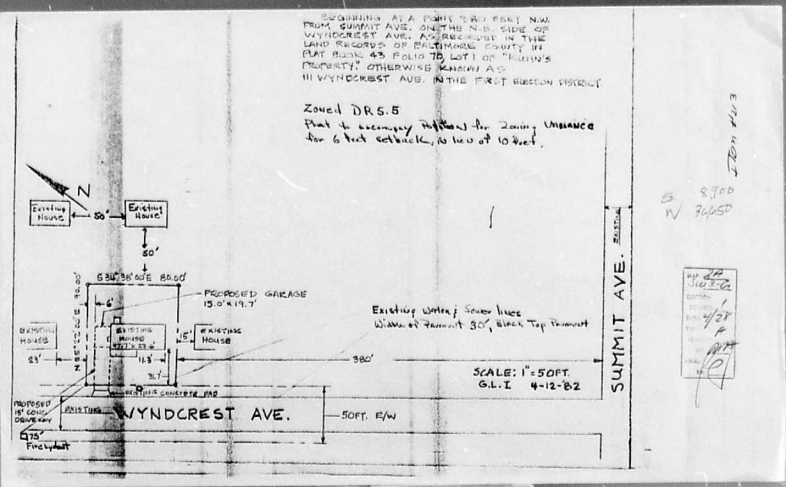 BEGINNING AT A POINT 380 FEET N.W.
FROM SUMMIT AVE. ON THE N.E. SIDE OF
WYNDCREST AVE. AS RECORDED IN THE
LAND RECORDS OF BALTIMORE COUNTY IN
PLAT BOOK 43 FOLIO 70, LOT 1 OF "KUHN'S
PROPERTY." OTHERWISE KNOWN AS
111 WYNDCREST AVE. IN THE FIRST ELECTION DISTRICT
Zoned DR 5.5
Plat to accompany Petition for Zoning VARIANCE
for 6 feet setback, in lieu of 10 feet.
Item #213
8,900
W 36,650
N
Existing House
50'
Existing House
80'
S 34° 38' 00" E 80.00'
90.00'
6'
PROPOSED GARAGE
15.0' x 19.7'
EXISTING HOUSE
23'
EXISTING HOUSE
11.3'
15'
EXISTING HOUSE
31.7'
Existing Water & Sewer lines
Width of Pavement 30', Black Top Pavement
380'
SCALE: 1" = 50 FT.
G.L.I 4-12-82
EXISTING CONCRETE PAD
PROPOSED
15' CONC.
DRIVEWAY
EXISTING
WYNDCREST AVE.
50 FT. R/W
75'
Fire hydrant
SUMMIT AVE.
EXISTING
2A
SW 3-G
1
4/28
A